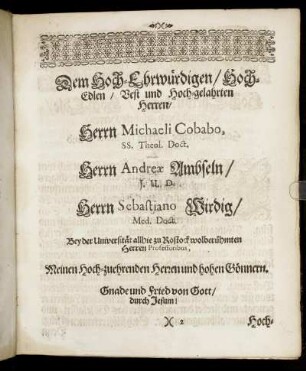 Dem Hoch-Ehrwürdigen/ Hoch-
Edlen/ Vest und Hoch-gelahrten
Herren/
Herrn Michaeli Cobabo,
SS. Theol. Doct.
Herrn Andreæ Ambseln/
J. U. D.
Herrn Sebastiano Wirdig/
Med. Doct.
Bey der Universität allhie zu Rostock wolberühmten
Herren Professoribus,
Meinen Hoch-zuehrenden Herren und hohen Gönnern.
Gnade und Fried von Gott/
durch Jesum!
X 2 Hoch-